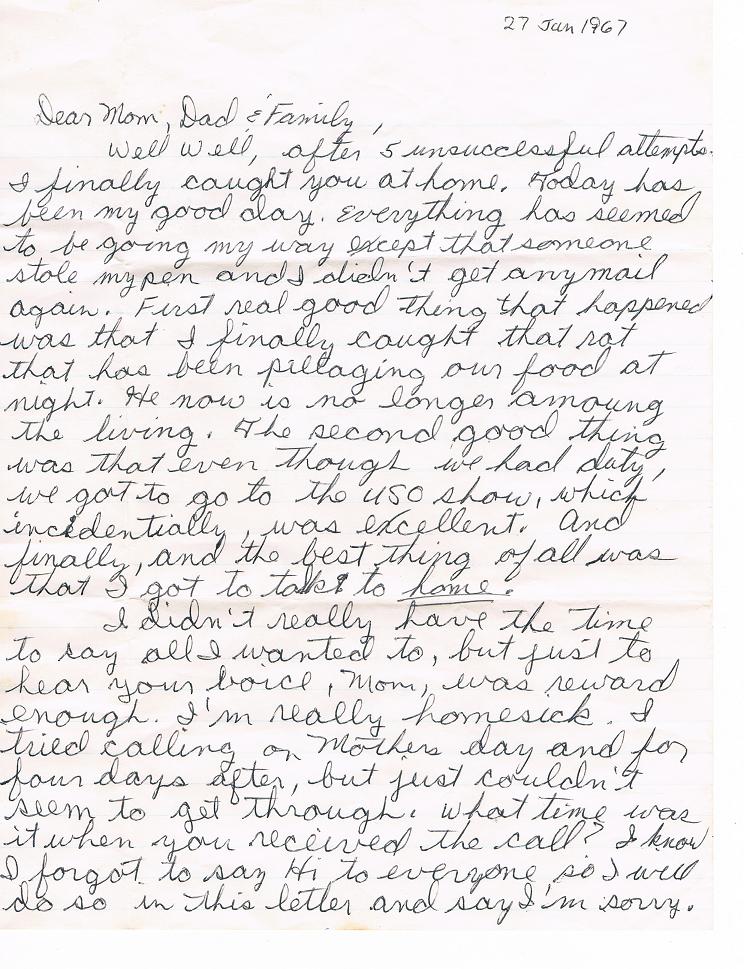 27 Jan 1967
Dear Mom, Dad & Family,
Well Well, after 5 unsuccessful attempts
I finally caught you at home. Today has
been my good day. Everything has seemed
to be going my way except that someone
stole my pen and I didn't get any mail
again. First real good thing that happened
was that I finally caught that rat
that has been pillaging our food at
night. He now is no longer amoung
the living. The second good thing
was that even though we had duty,
we got to go to the USO show, which
incidentially, was excellent. And
finally, and the best thing of all was
that I got to talk to home.
I didn't really have the time
to say all I wanted to, but just to
hear your voice, Mom, was reward
enough. I'm really homesick. I
tried calling on Mothers day and for
four days after, but just couldn't
seem to get through. What time was
it when you received the call? I know
I forgot to say Hi to everyone so I will
do so in this letter and say I'm sorry.